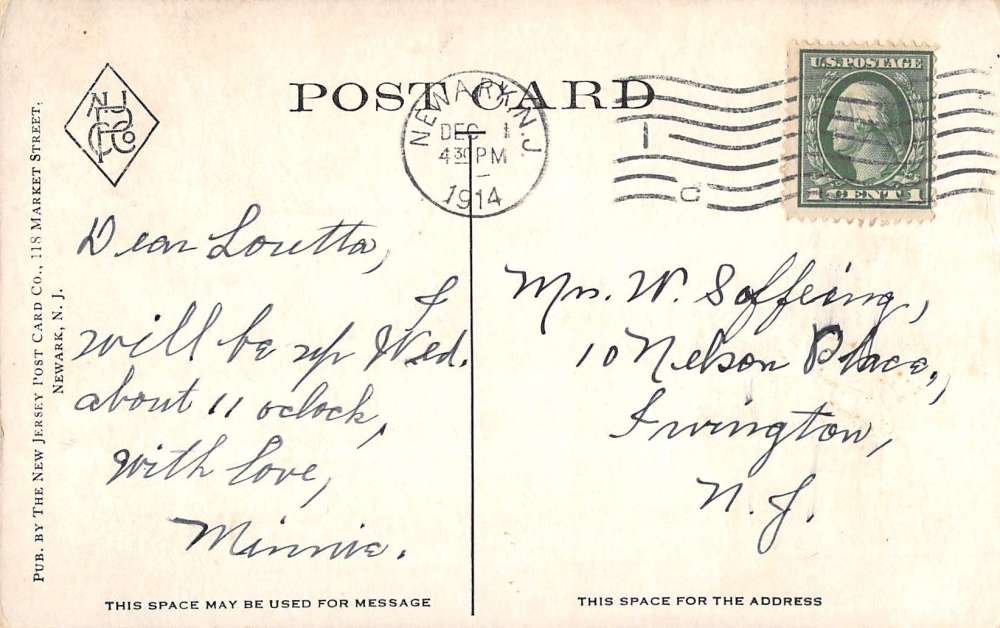 POST CARD
NEWARK, N.J.
DEC 1
4 30 PM
1914
1
C
U.S. POSTAGE
1 CENT 1
N J
P C Co
PUB. BY THE NEW JERSEY POST CARD CO., 118 MARKET STREET,
NEWARK, N. J.
Dear Loretta,
I
will be up Wed.
about 11 oclock,
with love,
Minnie.
Mrs. W. Soffeing,
10 Nelson Place,
Irvington,
N. J.
THIS SPACE MAY BE USED FOR MESSAGE
THIS SPACE FOR THE ADDRESS